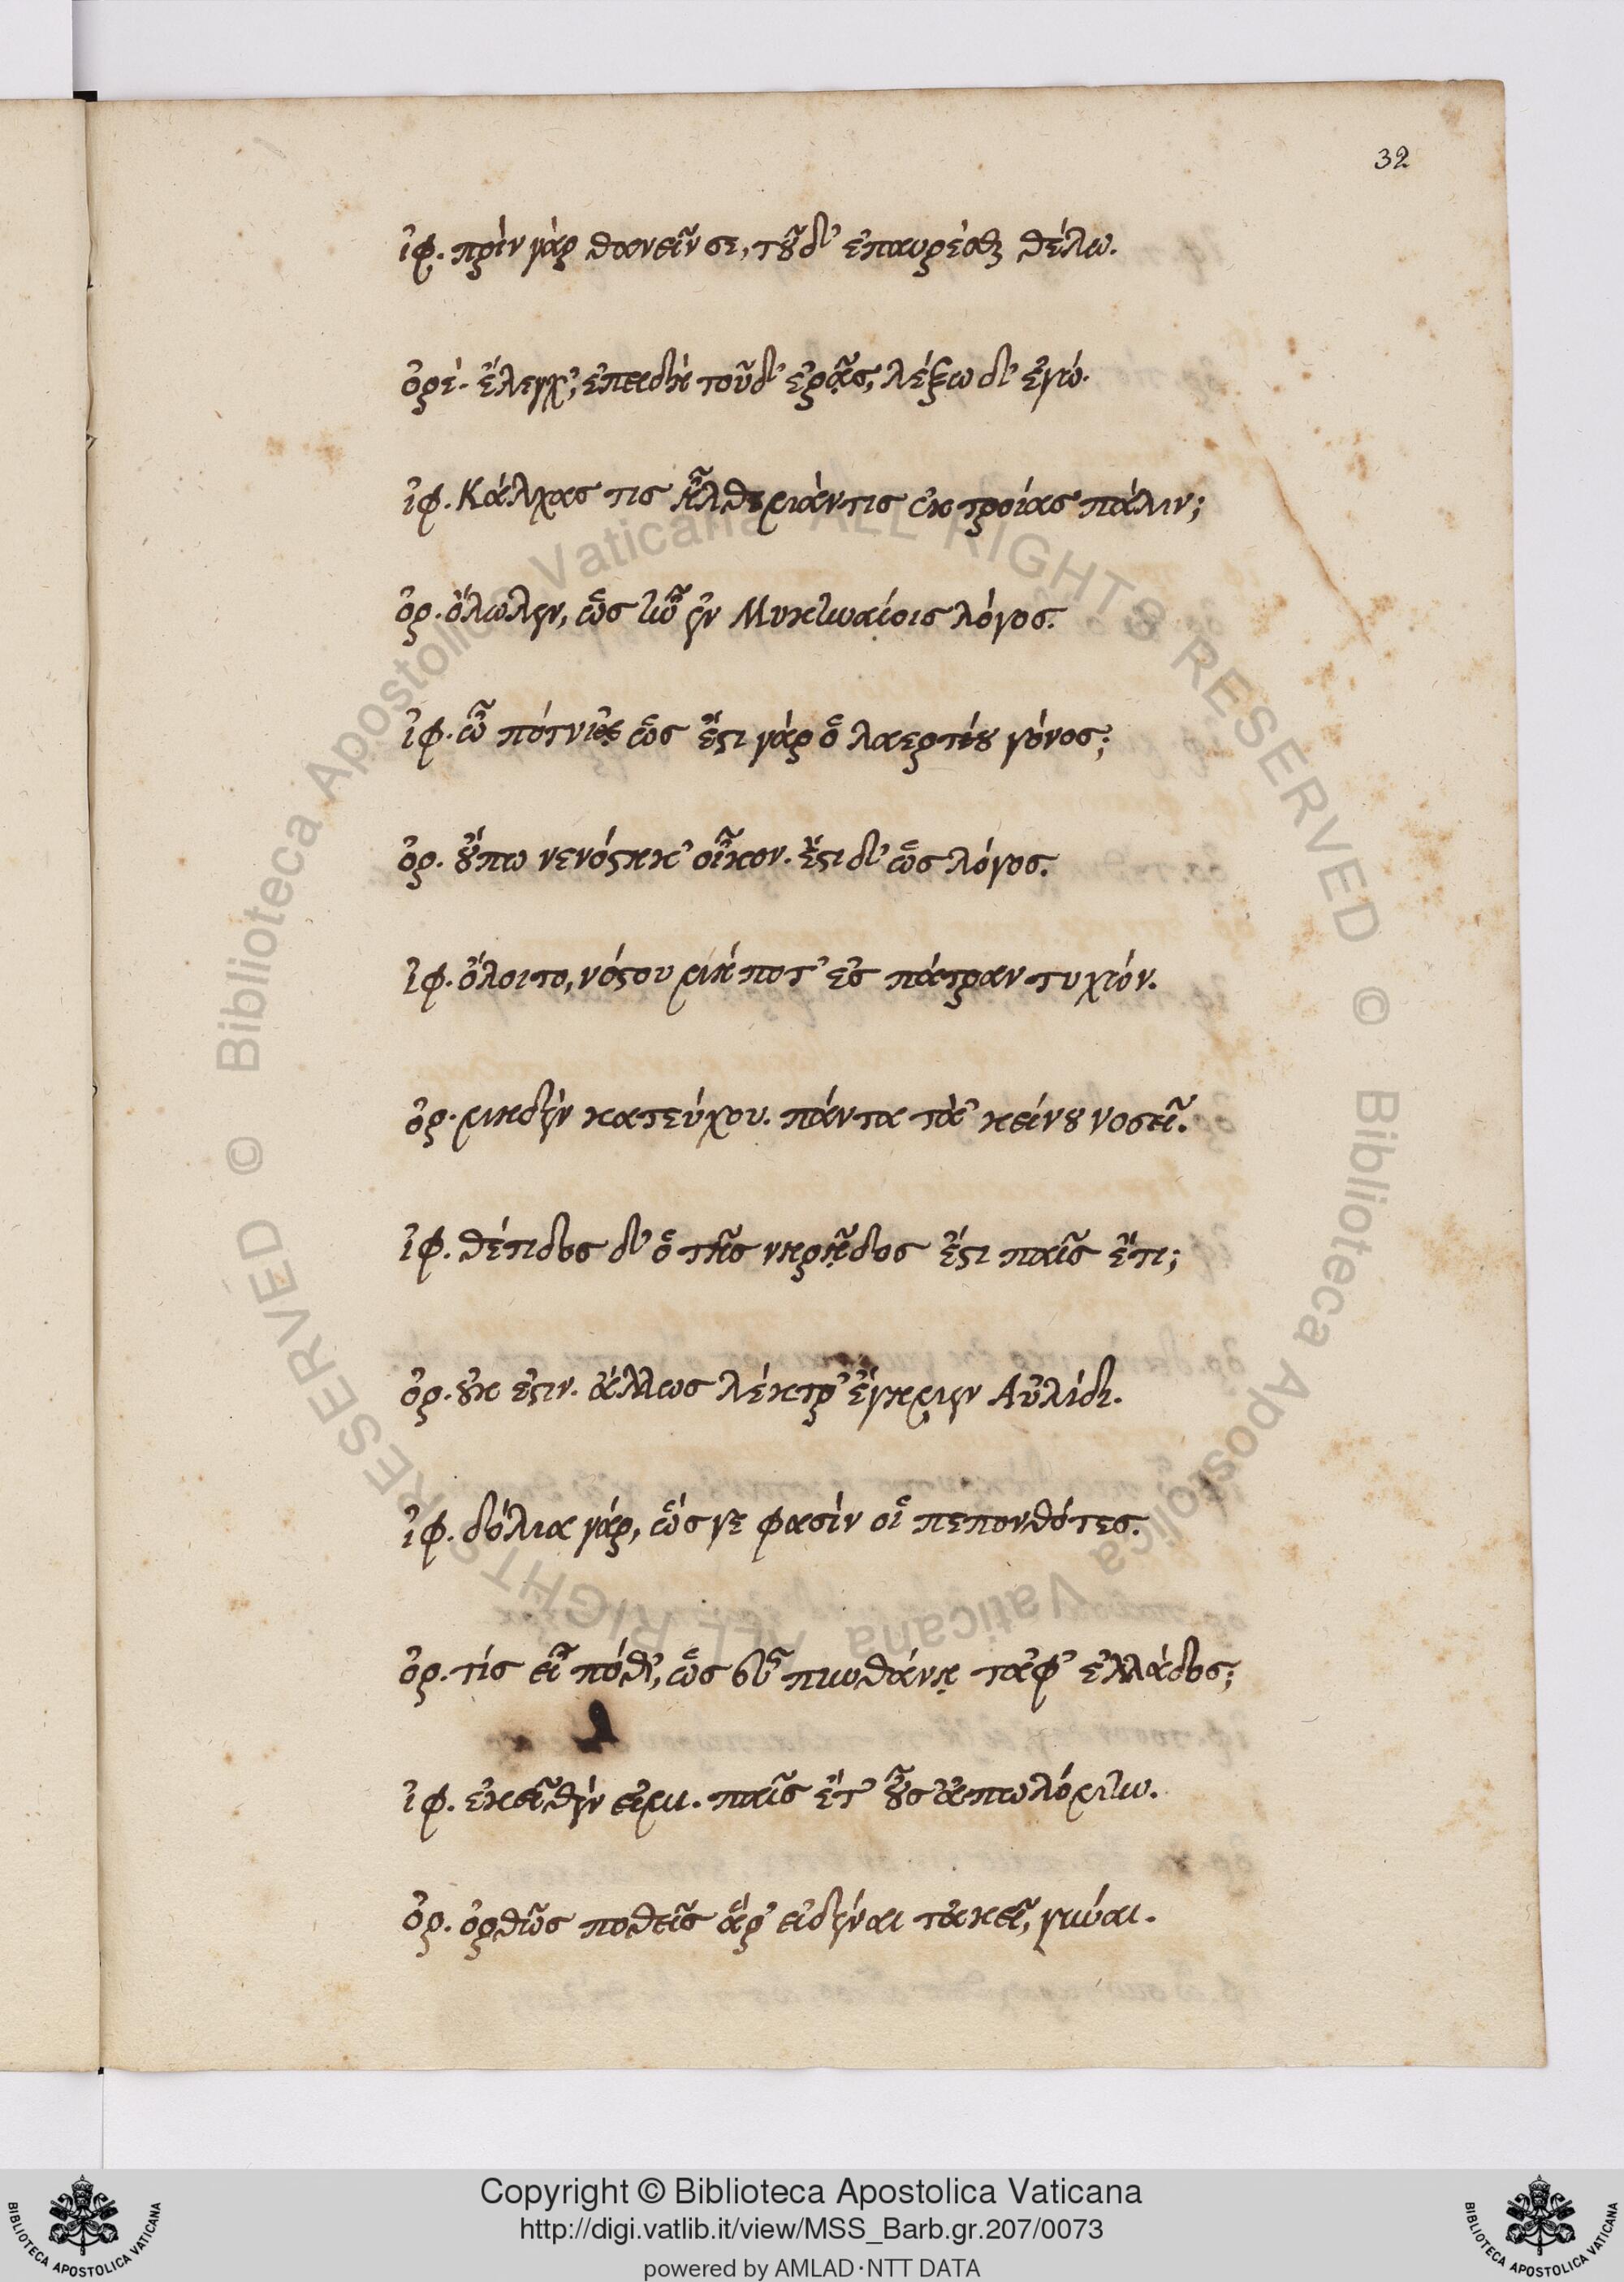 32
ἰφ. πρὶν γὰρ θανεῖν σε, τοῦδ' ἐπαυρέσθαι θέλω.
ὀρέ. ἔλεγχ', ἐπειδὴ τοῦδ' ἐρᾷς, λέξω δ' ἐγώ.
ἰφ. Κάλχας τις ἦλθε μάντις ἐκ τροίας πάλιν;
ὀρ. ὄλωλεν, ὡς ἦν ἐν Μυκηναίοις λόγος.
ἰφ. ὦ πότνι' ὡς ἔστι γὰρ ὁ λαερτίου γόνος;
ὀρ. οὔπω νενόστηκ' οἶκον. ἔστι δ' ὡς λόγος.
ἰφ. ὄλοιτο, νόστου μή ποτ' ἐς πάτραν τυχών.
ὀρ. μηδὲν κατεύχου. πάντα τὰ' κείνου νοσεῖ.
ἰφ. θέτιδος δ' ὁ τῆς νηρῇδος ἔστι παῖς ἔτι;
ὀρ. οὐκ ἐστιν. ἄλλως λέκτρ' ἔγημεν Αὐλίδι.
ἰφ. δόλια γάρ, ὥς γε φασὶν οἱ πεπονθότες.
ὀρ. τίς εἶ πόθ', ὡς εὖ πυνθάνῃ τἀφ' ἑλλάδος;
ἰφ. ἐκεῖθεν εἰμι. παῖς ἔτ' οὖσ' ἀπωλόμην.
ὀρ. ὀρθῶς ποθεῖς ἄρ' εἰδέναι τἀκεῖ, γύναι.
Copyright © Biblioteca Apostolica Vaticana
http://digi.vatlib.it/view/MSS_Barb.gr.207/0073
powered by AMLAD·NTT DATA
BIBLIOTECA APOSTOLICA VATICANA
BIBLIOTECA APOSTOLICA VATICANA
© Biblioteca Apostolica Vaticana ALL RIGHTS RESERVED
© Biblioteca Apostolica Vaticana ALL RIGHTS RESERVED